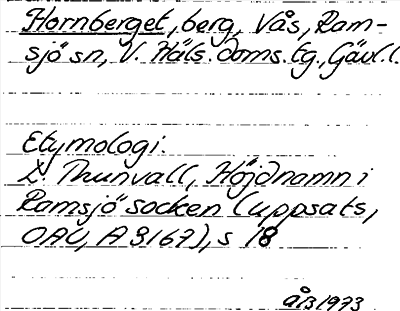 Hornberget, berg, Vås, Ram-
sjö sn, V. Häls. doms. tg., Gävl. l.
Etymologi.
L. Thunvall, Höjdnamn i
Ramsjö socken (uppsats,
OAU, A 3167), s 18
ÅB 1973